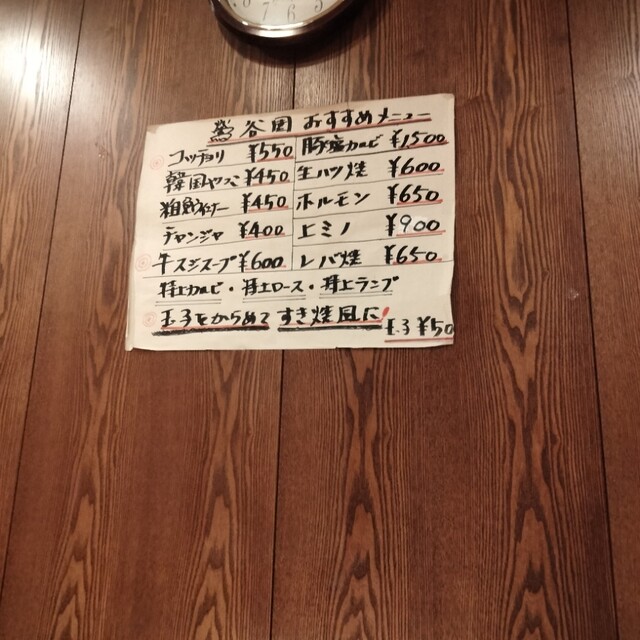 鶯谷園 おすすめメニュー
コッチョリ ¥550
韓国やっこ ¥450
粗挽ウインナー ¥450
チャンジャ ¥400
牛スジスープ ¥600
豚塩カルビ ¥1500
生ハツ焼 ¥600
ホルモン ¥650
上ミノ ¥900
レバ焼 ¥650
特上カルビ・特上ロース・特上ランプ
玉子をからめて すき焼風に!
玉子 ¥50
7 6 5